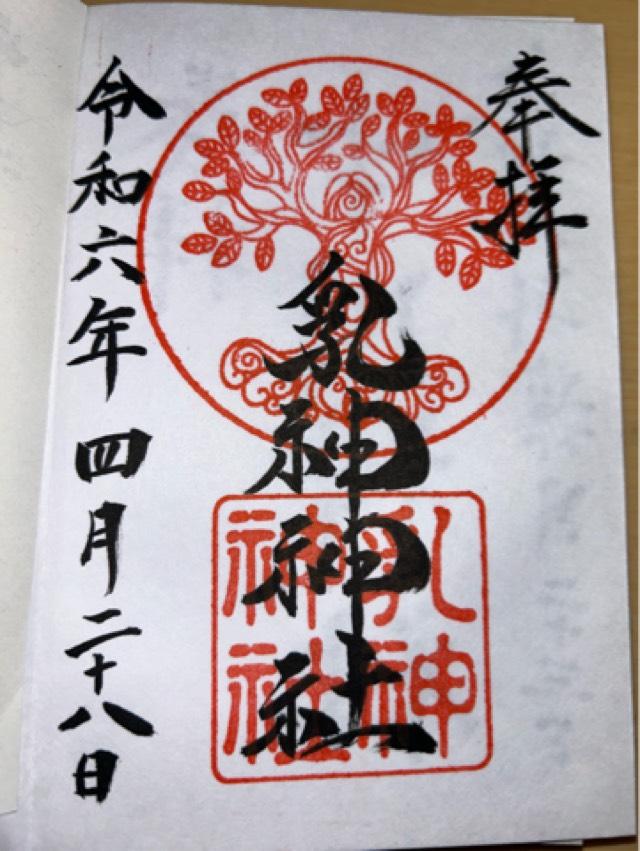 奉拝
乳神神社
乳神
神社
令和六年四月二十八日